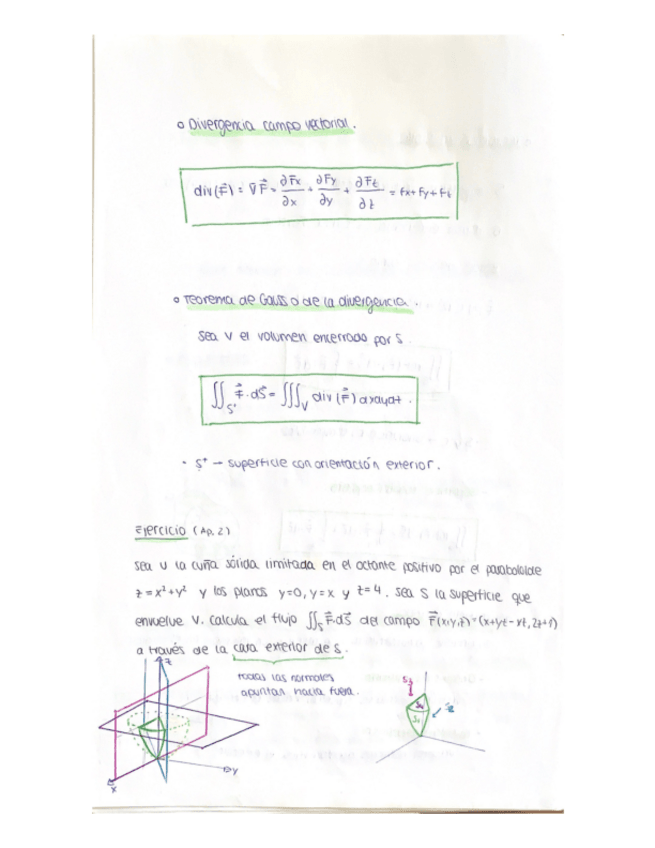 o Divergencia campo vectorial.
div(F⃗) = ∇F⃗ = ∂Fx/∂x + ∂Fy/∂y + ∂Fz/∂z = fx+fy+fz
o Teorema de Gauss o de la divergencia.
Sea V el volumen encerrado por S.
∬S⁺ F⃗·dS⃗ = ∭V div(F⃗) dxdydz.
• S⁺ → superficie con orientación exterior.
Ejercicio (Ap. 2)
Sea V la cuña sólida limitada en el octante positivo por el paraboloide
z = x²+y² y los planos y=0, y=x y z=4. Sea S la superficie que
envuelve V. Calcula el flujo ∬S F⃗·dS⃗ del campo F⃗(x,y,z)=(x+yz-xz,
a través de la cara exterior de S.
todas las normales
apuntan hacia fuera.
z
y
x